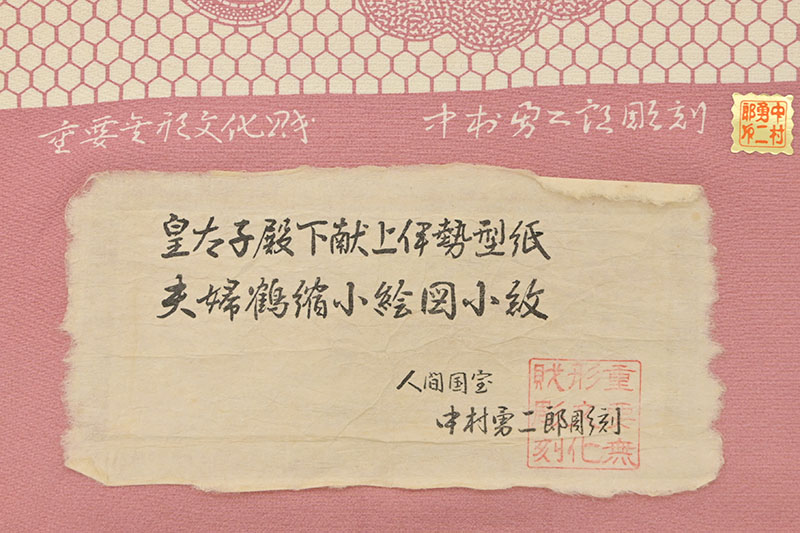 重要無形文化財 中村勇二郎彫刻
中村勇二郎印
皇太子殿下献上伊勢型紙
夫婦鶴縮小絵図小紋
人間国宝
中村勇二郎彫刻
重要無形文化財彫刻